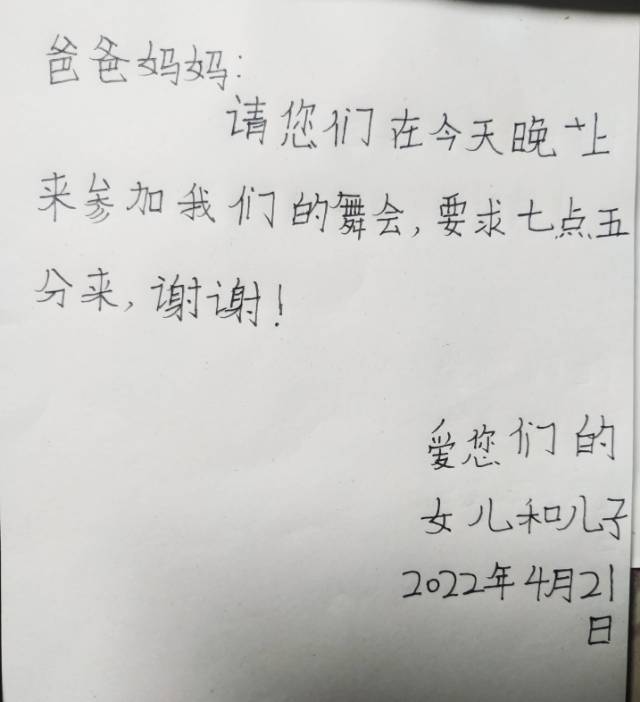 爸爸妈妈:
请您们在今天晚上
来参加我们的舞会,要求七点五
分来,谢谢!
爱您们的
女儿和儿子
2022年4月21
日